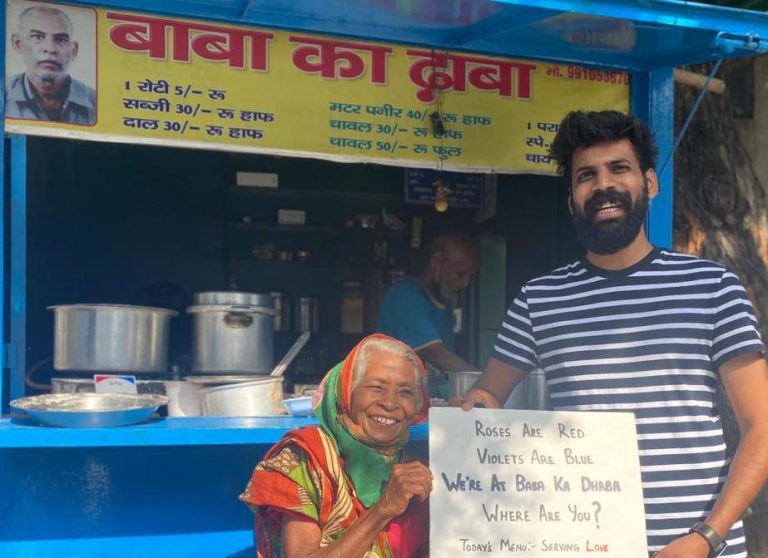 बाबा का ढ़ाबा
मो. 991053570
1 रोटी 5/– रू
सब्जी 30/– रू हाफ
दाल 30/– रू हाफ
मटर पनीर 40/– रू हाफ
चावल 30/– रू हाफ
चावल 50/– रू फुल
1 परा
स्पे.
चाय
Roses Are Red
Violets Are Blue
We're At Baba Ka Dhaba
Where Are You?
Today's Menu:- Serving Love